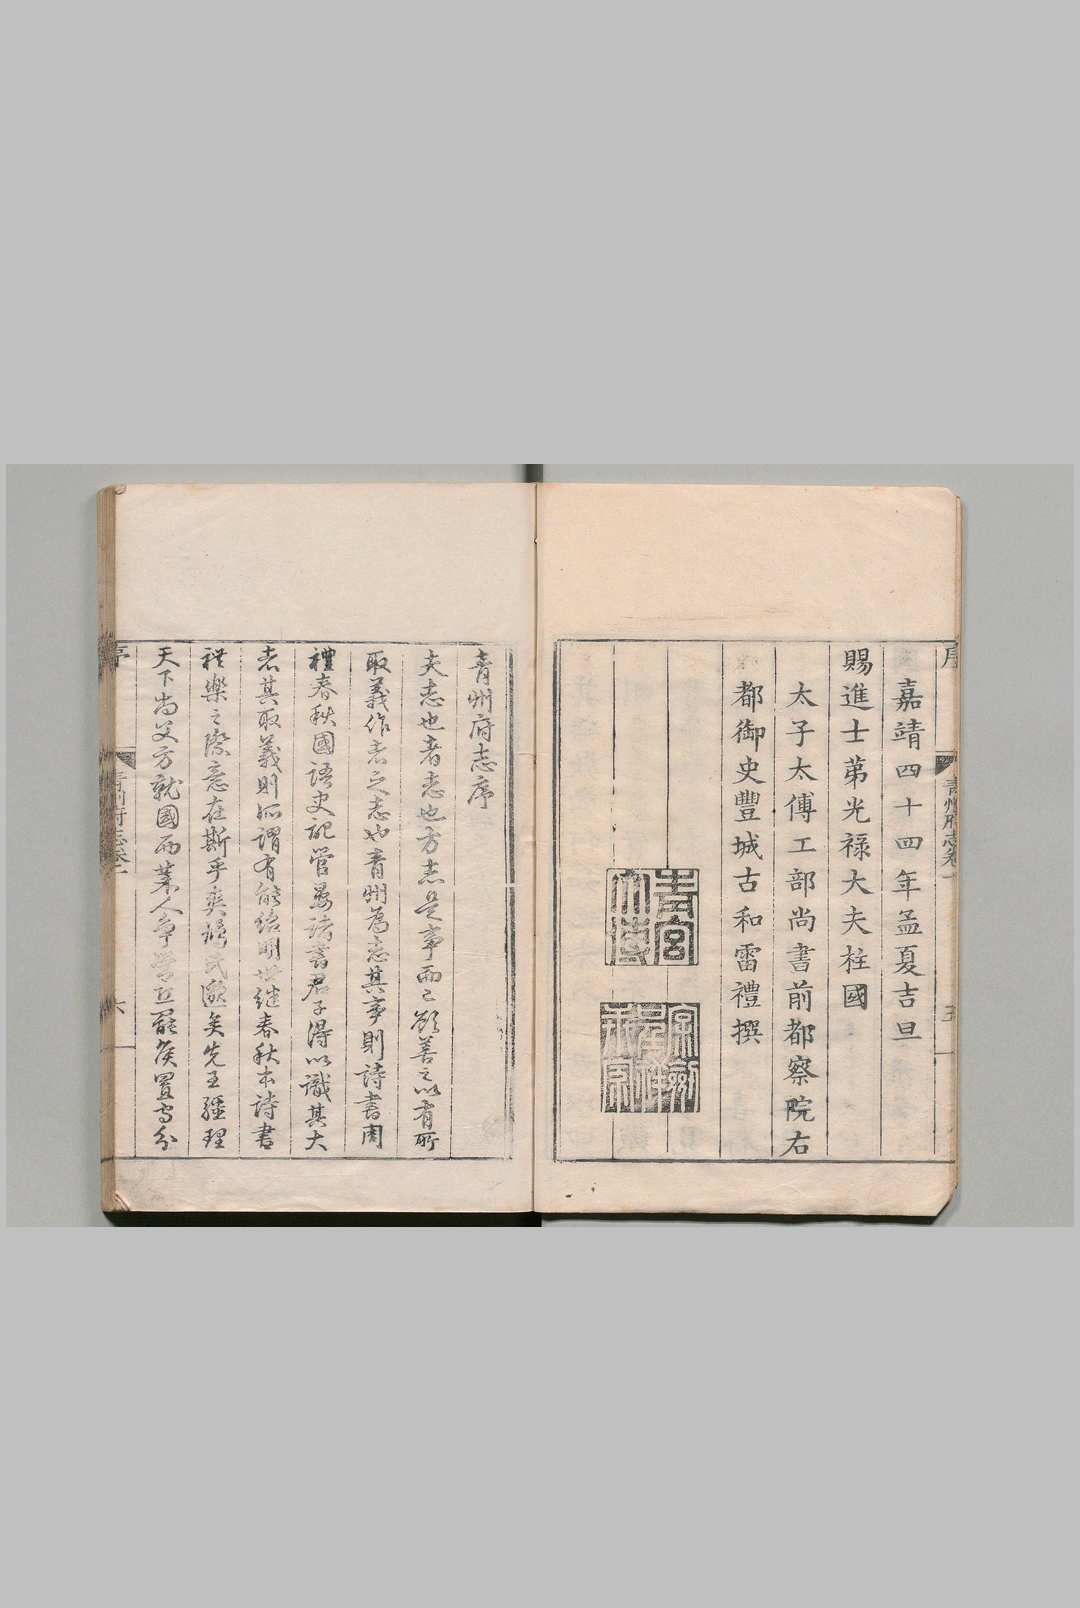 序
青州府志卷一
五
嘉靖四十四年孟夏吉旦
賜進士第光祿大夫柱國
太子太傅工部尚書前都察院右
都御史豐城古和雷禮撰
青宮
太傅
青州府志序
夫志也者志也方志是事而已欲善之以有所
取義作者之志也青州為志其事則詩書周
禮春秋國語史記管晏諸書君子得以識其大
者其取義則孤謂有能紹明世繼春秋本詩書
禮樂之際意在斯乎爽鳩氏邈矣先王疆理
天下尚父方就國而萊人爭營丘罷侯置守分
序
青州府志卷一
六